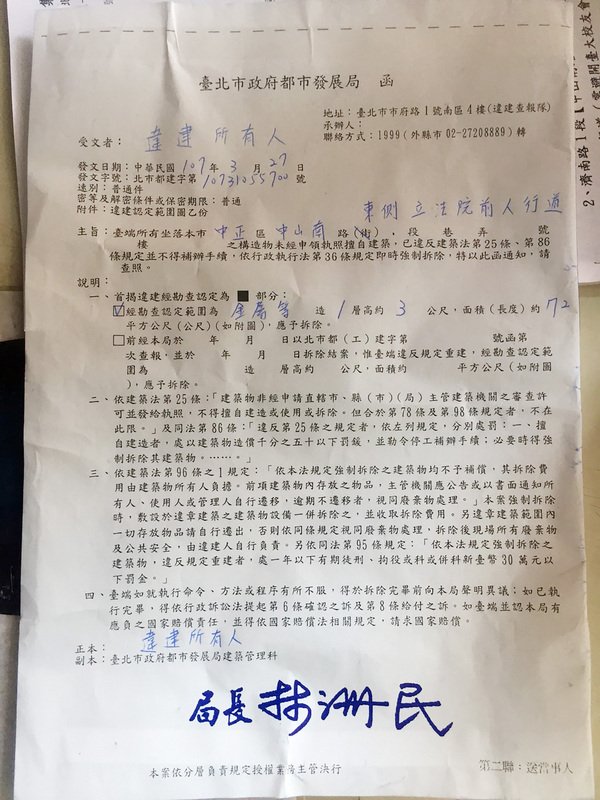 臺北市政府都市發展局 函
地址：臺北市市府路1號南區4樓(違建查報隊)
承辦人：
聯絡方式：1999(外縣市 02-27208889)轉
受文者：違建所有人
發文日期：中華民國107年3月27日
發文字號：北市都建字第10731055700號
速別：普通件
密等及解密條件或保密期限：普通
附件：違建認定範圍圖乙份
東側 立法院前人行道
主旨：臺端所有坐落本市 中正 區 中山南 路(街)， 段 巷 弄 號
樓 之構造物未經申領執照擅自建築，已違反建築法第25條、第86
條規定並不得補辦手續，依行政執行法第36條規定即時強制拆除，特以此函通知，請
查照。
說明：
一、首揭違建經勘查認定為■部分：
☑經勘查認定範圍為 金屬等 造 1 層高約 3 公尺，面積(長度)約 72
平方公尺(公尺)(如附圖)，應予拆除。
□前經本局於 年 月 日以北市都(工)建字第 號函第
次查報，並於 年 月 日拆除結案，惟臺端違反規定重建，經勘查認定範
圍為 造 層高約 公尺，面積約 平方公尺(如附
圖)，應予拆除。
二、依建築法第25條：「建築物非經申請直轄市、縣（市）(局)主管建築機關之審查許
可並發給執照，不得擅自建造或使用或拆除。但合於第78條及第98條規定者，不在
此限。」及同法第86條：「違反第25條之規定者，依左列規定，分別處罰：一、擅
自建造者，處以建築物造價千分之五十以下罰鍰，並勒令停工補辦手續；必要時得強
制拆除其建築物。……。」
三、依建築法第96條之1規定：「依本法規定強制拆除之建築物均不予補償，其拆除費
用由建築物所有人負擔。前項建築物內存放之物品，主管機關應公告或以書面通知所
有人、使用人或管理人自行遷移，逾期不遷移者，視同廢棄物處理。」本案強制拆除
時，敷設於違章建築之建築物設備一併拆除之，並收取拆除費用。另違章建築範圍內
一切存放物品請自行遷出，否則依同條規定視同廢棄物處理，拆除後現場所有廢棄物
及公共安全，由違建人自行負責。另依同法第95條規定：「依本法規定強制拆除之
建築物，違反規定重建者，處一年以下有期徒刑、拘役或科或併科新臺幣30萬元以
下罰金。」
四、臺端如就執行命令、方法或程序有所不服，得於拆除完畢前向本局聲明異議；如已執
行完畢，得依行政訴訟法提起第6條確認之訴及第8條給付之訴。如臺端並認本局有
應負之國家賠償責任，並得依國家賠償法相關規定，請求國家賠償。
正本：違建所有人
副本：臺北市政府都市發展局建築管理科
局長林洲民
本案依分層負責規定授權業務主管決行
第二聯：送當事人
2、濟南路1段